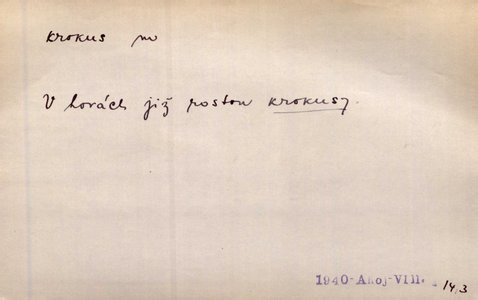 krokus m
V horách již rostou krokusy.
1940-Ahoj-VIII. 14,3